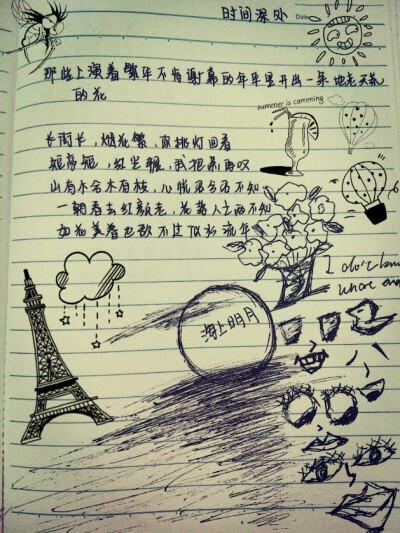 时间深处
Date
那些上演着繁华不肯谢幕的年年里开出一朵地老天荒
的花
summer is camming
长街长，烟花繁，你挑灯回看
短亭短，红尘辗，我把萧再叹
山有木兮木有枝，心悦君兮君不知
一朝春去红颜老，花落人亡两不知
如花美眷也敌不过似水流年
I don't know
海上明月